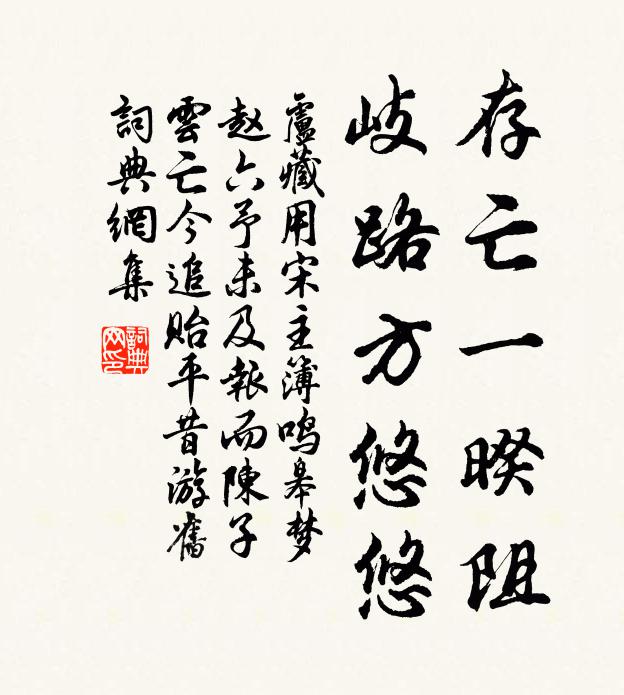 存亡一暌阻
岐路方悠悠
盧藏用宋主簿鳴皋梦
赵六予未及報而陳子
雲亡今追貽平昔游舊
詞典網集
詞典
网印